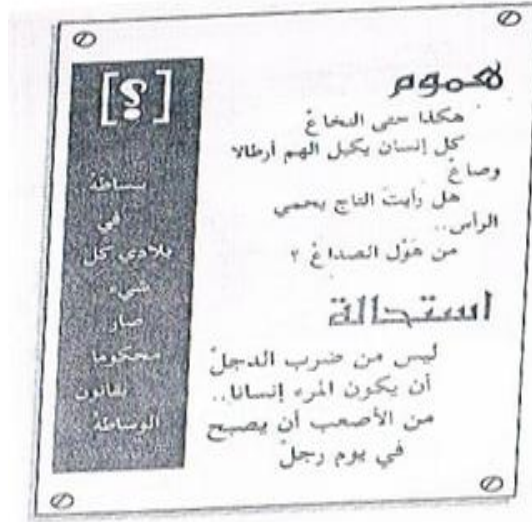 هموم
هكذا حتى النخاعْ
كل إنسان يكيل الهم أرطالا
وصاعْ
هل رأيتَ التاج يحمي
الرأس..
من هَوْل الصداعْ ؟
استحالة
ليس من ضرب الدجلْ
أن يكون المرء إنسانا..
من الأصعب أن يصبح
في يوم رجلْ
[؟]
ببساطة
في
بلادي كل
شيء
صار
محكوما
بقانون
الوساطة